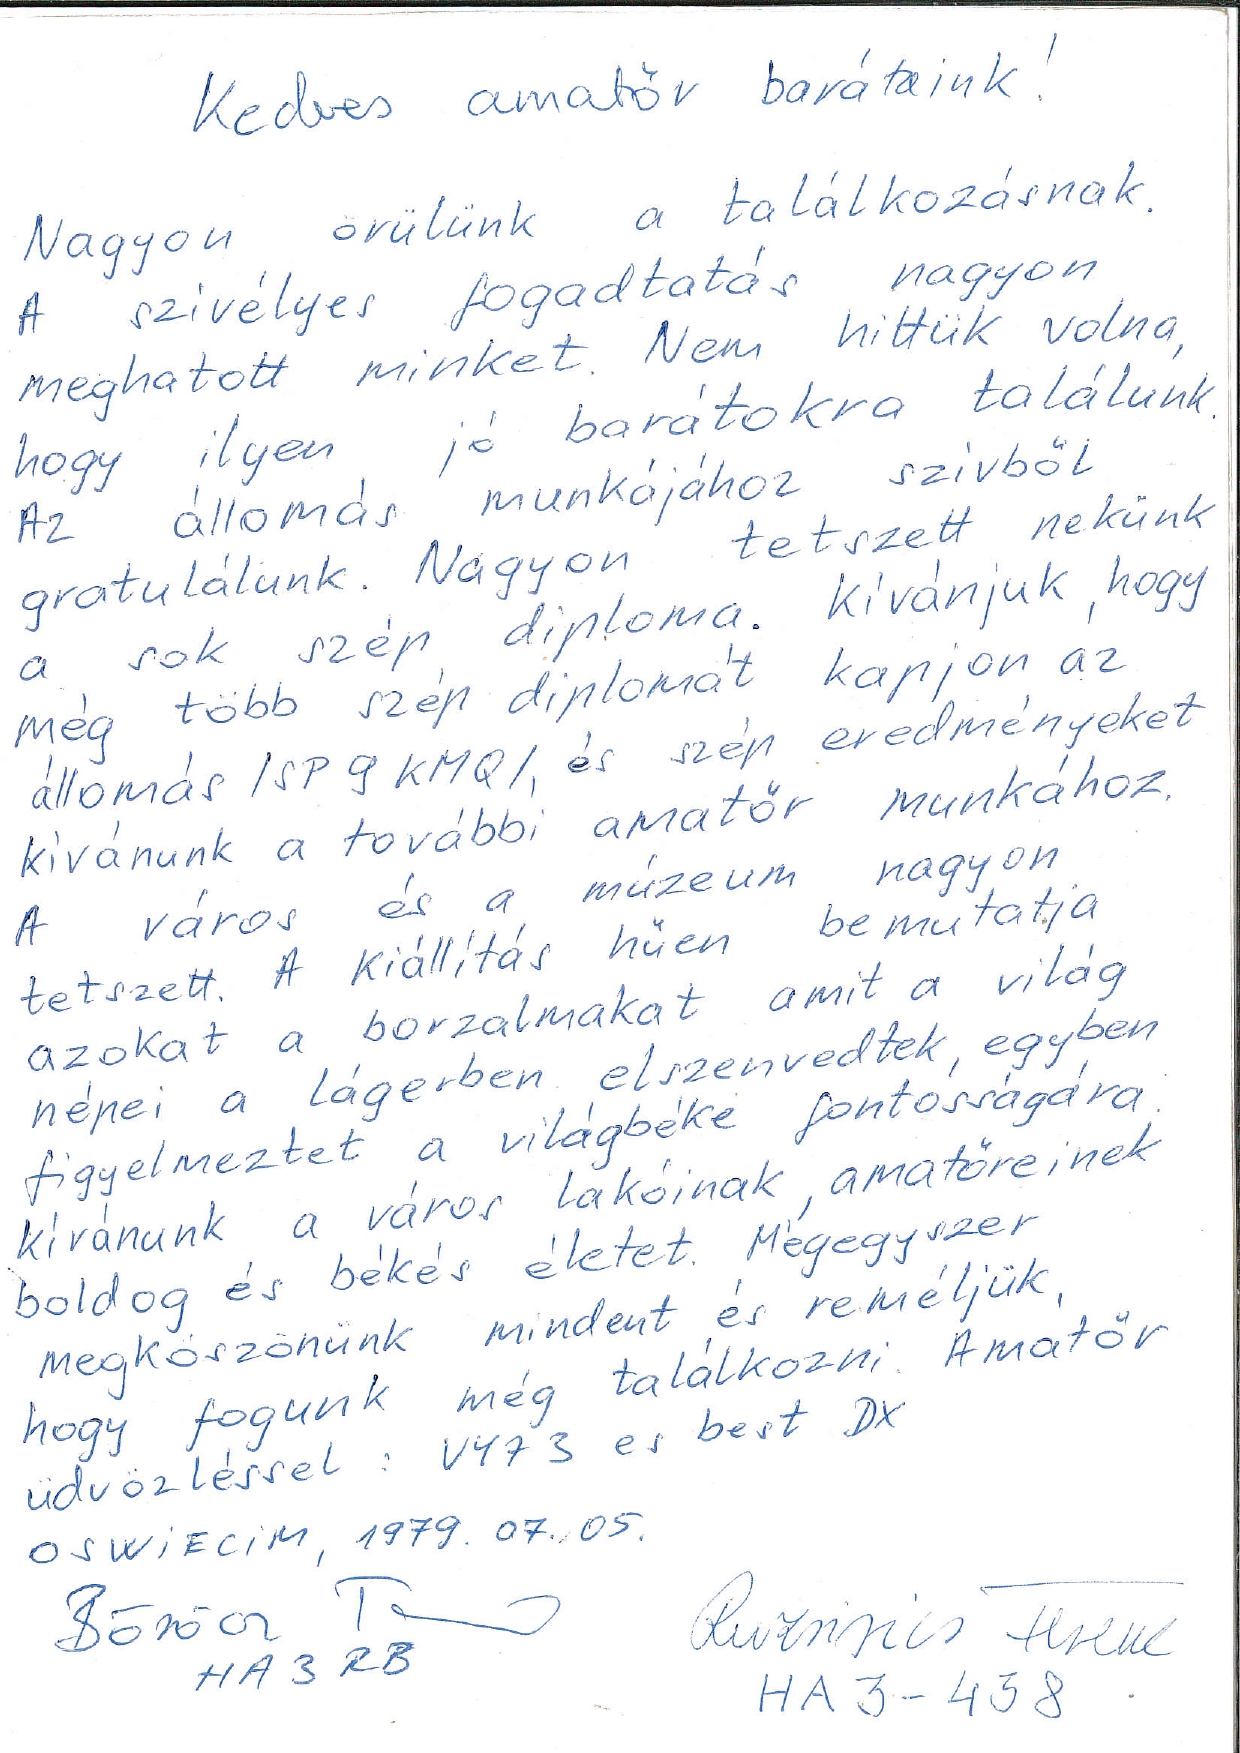 Kedves amatőr barátaink!
Nagyon örülünk a találkozásnak.
A szivélyes fogadtatás nagyon
meghatott minket. Nem hittük volna,
hogy ilyen jó barátokra találunk.
Az állomás munkájához szivből
gratulálunk. Nagyon tetszett nekünk
a sok szép diploma. Kivánjuk, hogy
még több szép diplomát kapjon az
állomás /SP9KMQ/, és szép eredményeket
kivánunk a további amatőr munkához.
A város és a múzeum nagyon
tetszett. A kiállítás hűen bemutatja
azokat a borzalmakat amit a világ
népei a lágerben elszenvedtek, egyben
figyelmeztet a világbéke fontosságára.
kivánunk a város lakóinak, amatőreinek
boldog és békés életet. Mégegyszer
megköszönünk mindent és reméljük,
hogy fogunk még találkozni. Amatőr
üdvözléssel: VY73 es best DX
OSWiECiM, 1979. 07. 05.
HA3RB
Ferenc
HA3-458